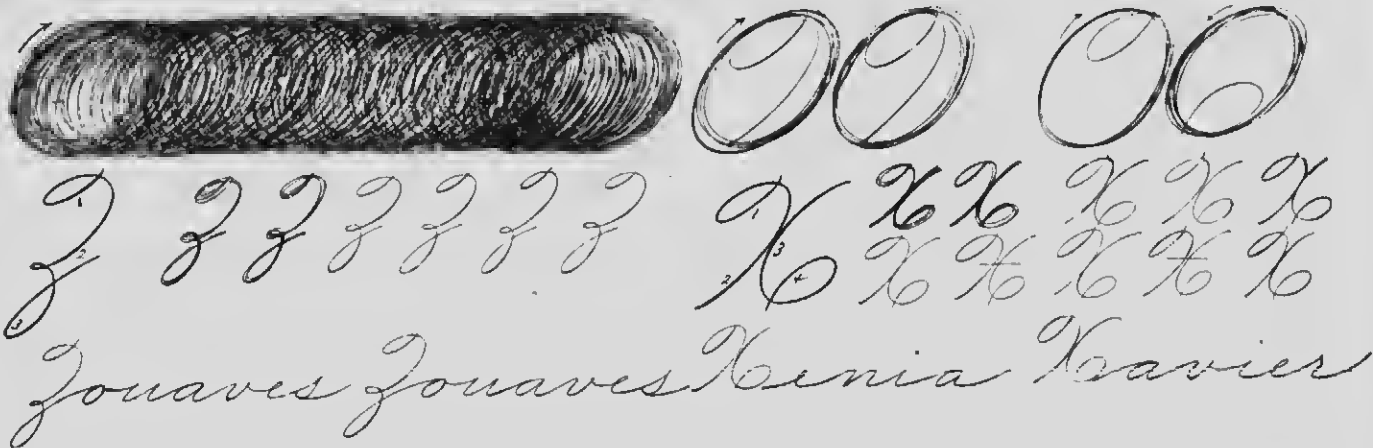 Z Z Z Z Z Z Z X X X X X X
X X X X X
Zouaves Zouaves Xenia Xavier